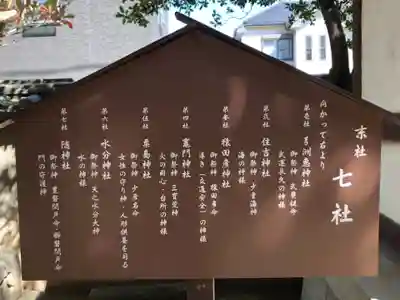 末社 七社
向かって右より
第壱社 洲魚神社
御祭神
武運長久の神様
第弐社 住吉神社
御祭神 少々海神
海の神様
第参社 猿田彦神社
御祭神 猿田彦命
導き(交通安全)の神様
第四社 竈門神社
御祭神 三宝荒神
火の用心・台所の神様
第伍社 粟島神社
御祭神 少彦名命
女性の守り神・人形供養を司る
第六社 水分神社
御祭神 天之水分大神
水の神様
第七社 随神社
御祭神 豊磐間戸命・櫛磐間戸命
門の守護神